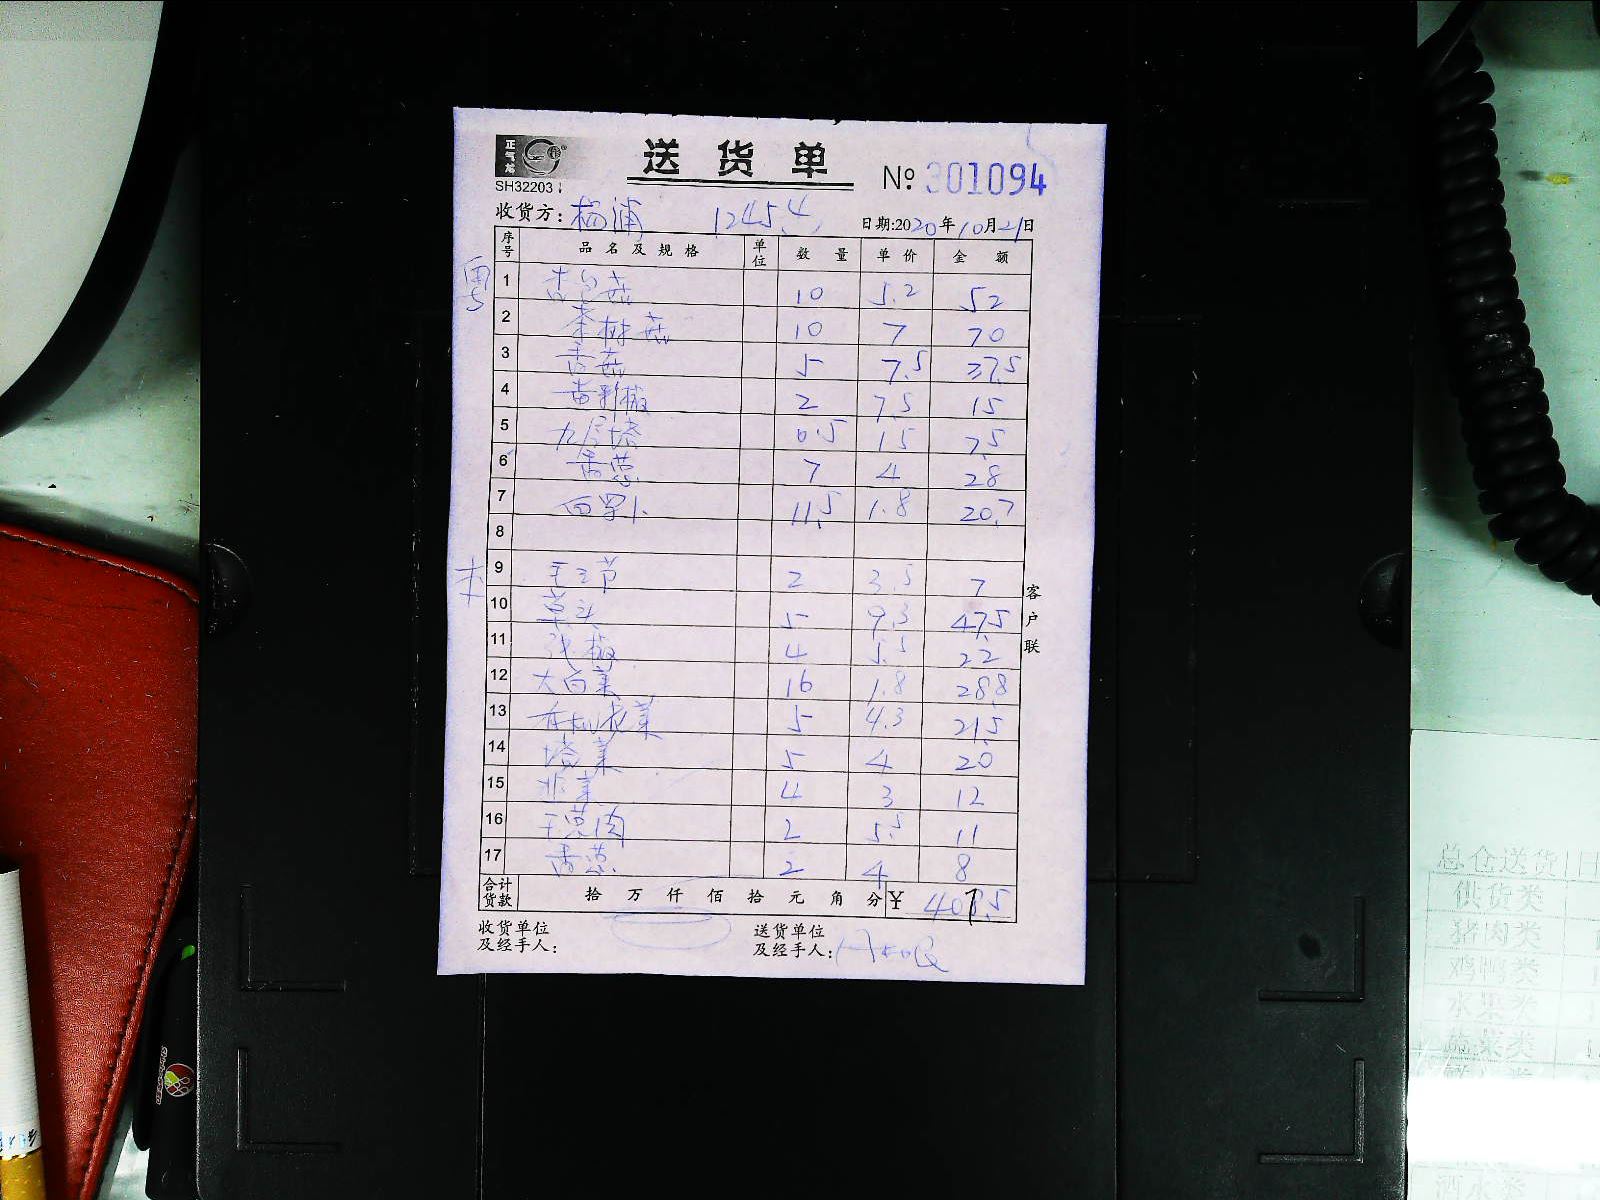 正气龙
送货单
SH32203
№ 301094
收货方: 杨浦 1245.4
日期:2020年10月21日
序号 品名及规格 单位 数量 单价 金额
1 杏包菇 10 5.2 52
2 茶树菇 10 7 70
3 香菇 5 7.5 37.5
4 黄彩椒 2 7.5 15
5 九层塔 0.5 15 7.5
6 香葱 7 4 28
7 白罗卜 11.5 1.8 20.7
8
9 2 3.5 7
10 草头 5 9.3 47.5
11 椒 4 5.5 22
12 大白菜 16 1.8 28.8
13 有机花菜 5 4.3 21.5
14 塔菜 5 4 20
15 韭菜 4 3 12
16 干葱肉 2 5.5 11
17 香葱 2 4 8
合计货款 拾 万 仟 佰 拾 元 角 分 ¥ 407.5
客户联
收货单位及经手人:
送货单位及经手人:
总仓送货 日
供货类
猪肉类
鸡鸭类
水果类
蔬菜类
酒水类